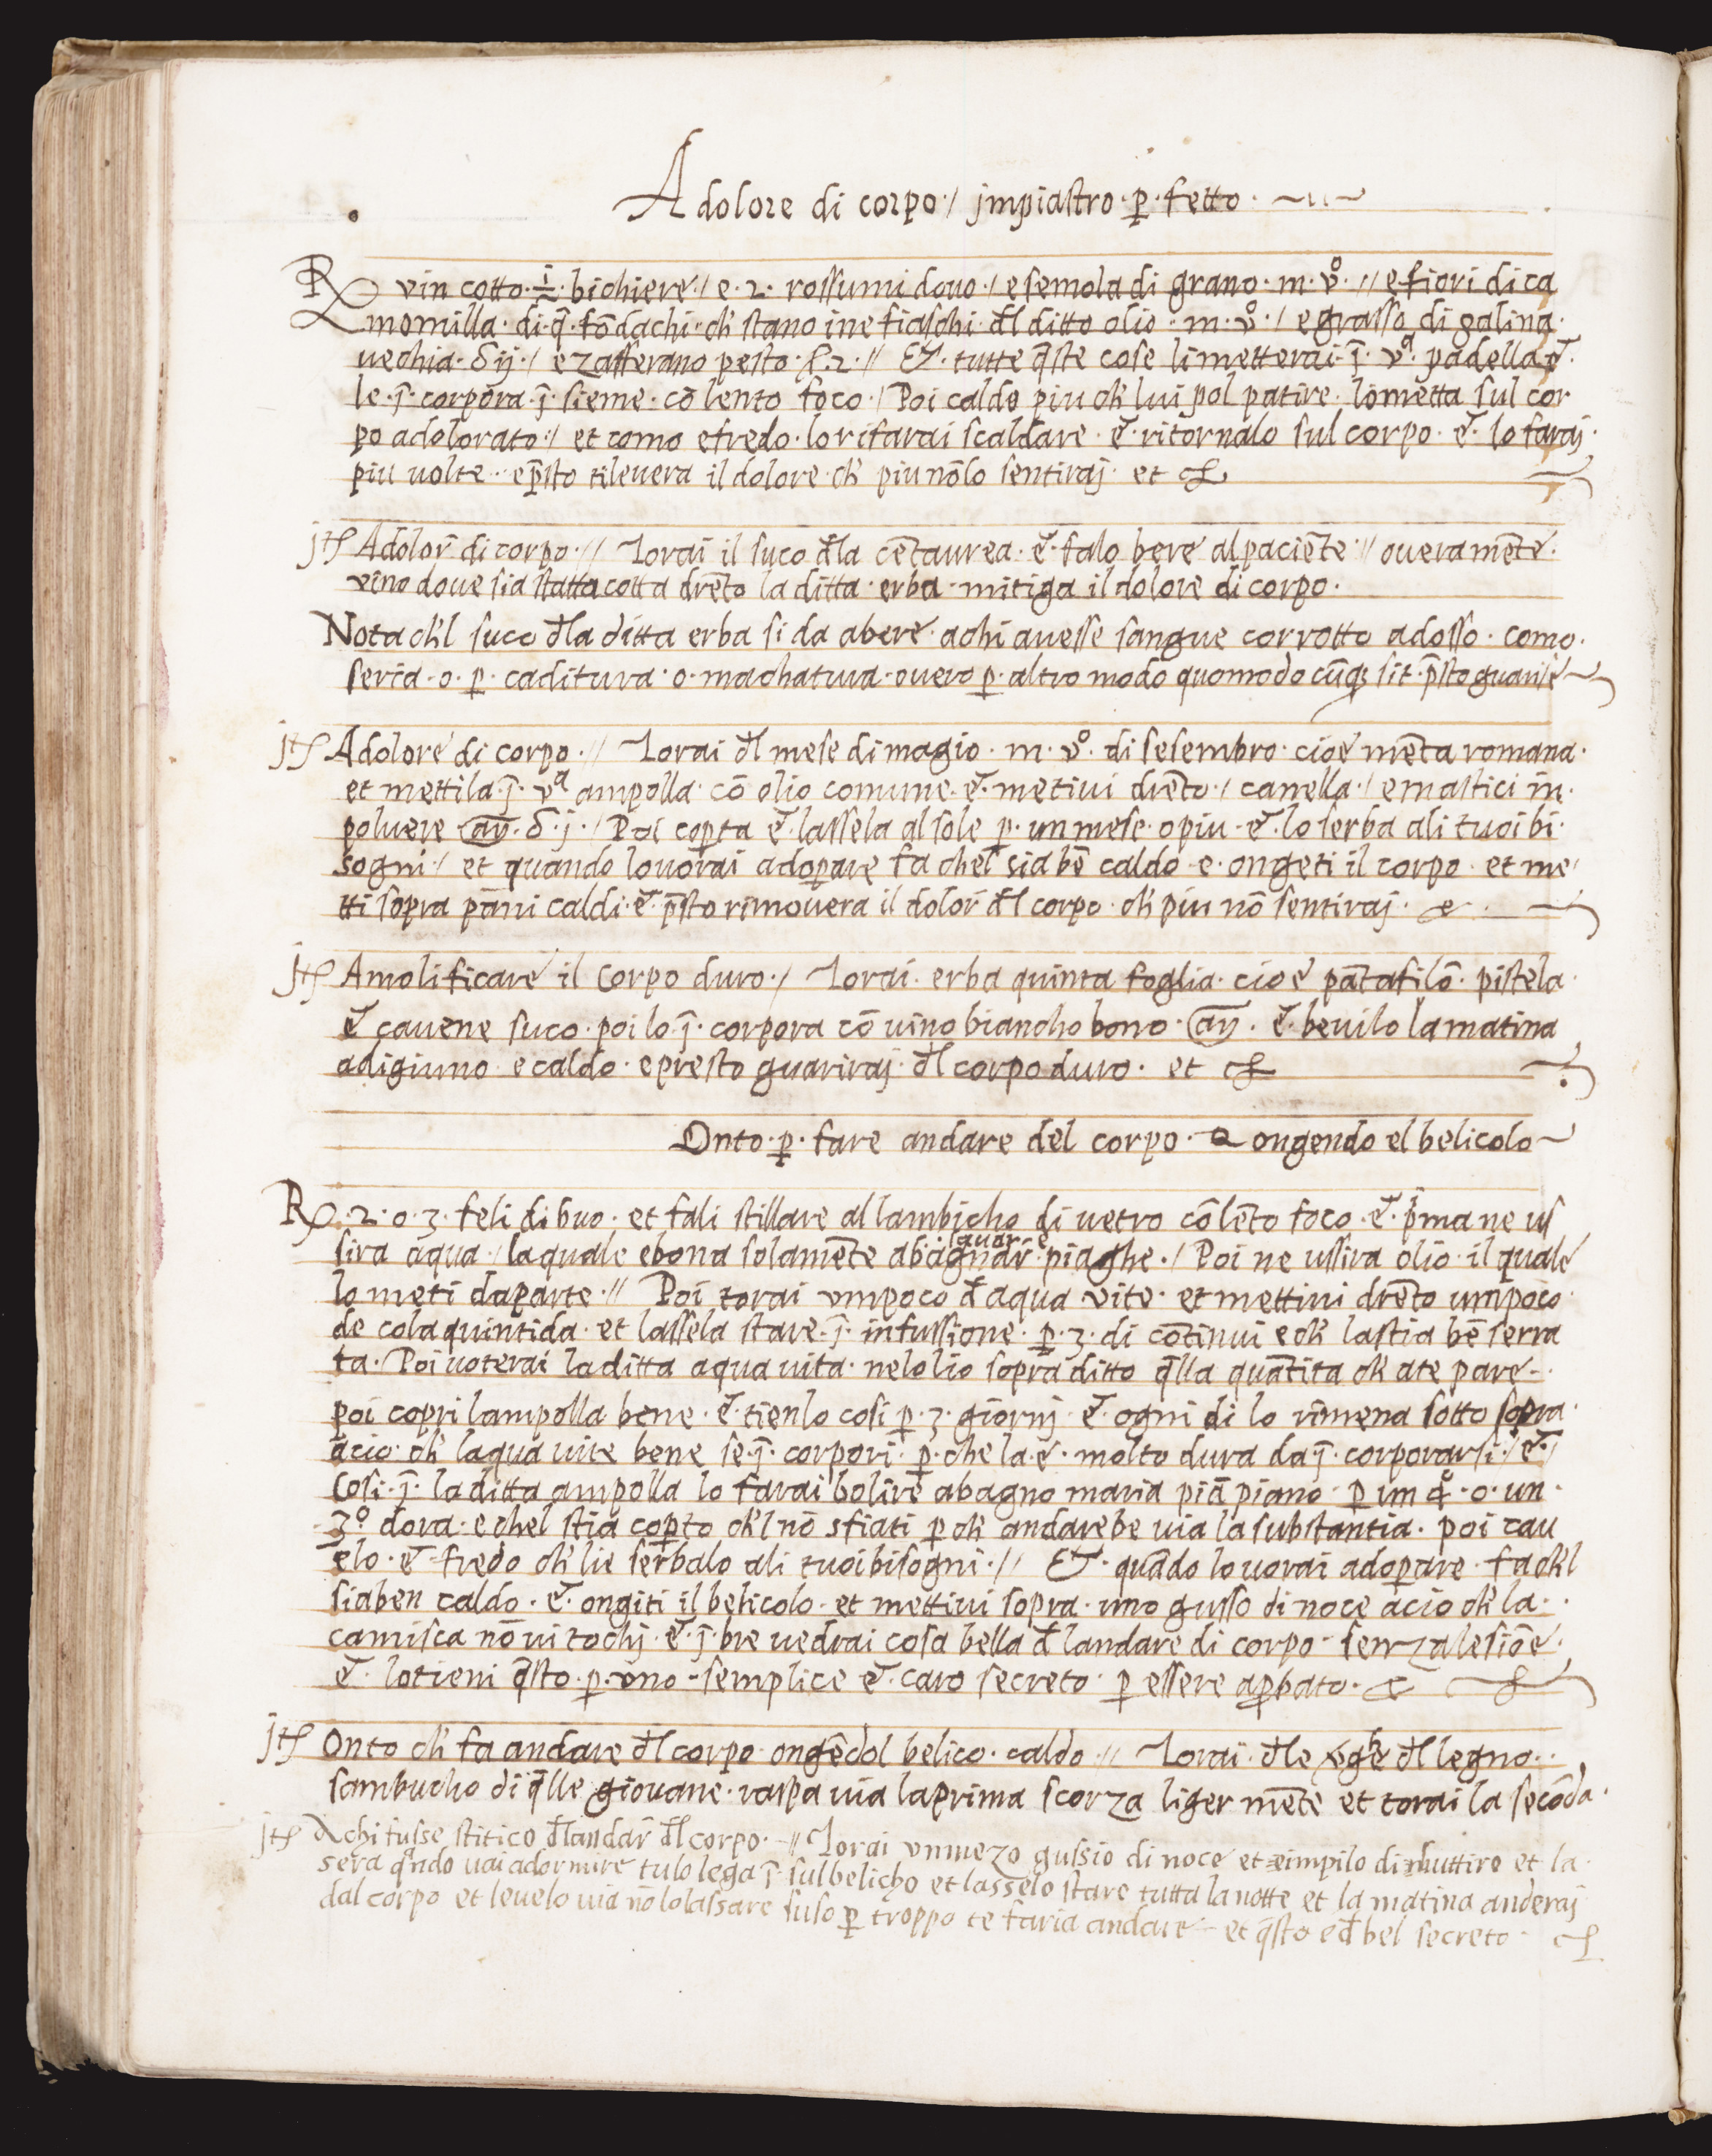 A dolore di corpo / jmpiastro ꝑ fetto
℞ vin cotto ½ bichiere / e 2 rossumi dovo / e semola di grano m vº // e fiori di ca
momilla di q̄ fōdachi ch̄ stano ine fiaschi dl̄ ditto olio m vº / e grasso di galina
uechia δ ij / e zafferano pesto 2 // Et tutte q̄ste cose li metterai j̄ vª padella e
le j̄ corpora j̄ sieme cō lento foco / Poi caldo piu ch̄ lui pol patire lometta sul cor
po adolorato / et como efredo lo rifarai scaldare e ritornalo sul corpo e lo faraj
piu uolte ep̄sto tileuera il dolore ch̄ piu nōlo sentiraj et
jtꝭ Adolor̄ di corpo // Torai il suco dl̄a cētaurea e falo bere alpaciēte // overamēte
vino doue sia statta cotta drēto la ditta erba mitiga il dolore di corpo
Nota ch̄l suco dl̄a ditta erba si da abere achi auesse sangue corrotto adosso como
seria o ꝑ caditura o machatura overo ꝑ altro modo quomodo cūqꝫ sit p̄sto guarise
jtꝭ Adolore di corpo // Torai dl̄ mese di magio m vº di sesembro cioe mēta romana
et mettila j̄ vª ampolla cō olio comune e metiui drēto / canella / emastici in
poluere aɲ̄ δ j / Poi coꝑta e lassela al sole ꝑ un mese o piu e lo serba ali tuoi bi
sogni / et quando louorai adoꝑare fa chel sia bē caldo e ongeti il corpo et me
tti sopra pāni caldi e p̄sto rimouera il dolor̄ dl̄ corpo ch̄ piu nō sentiraj
jtꝭ Amolificare il Corpo duro / Torai erba quinta foglia cioe pātafilō pistela
e cauene suco poi lo j̄ corpora cō uino biancho bono aɲ̄ e beuilo la matina
adigiuno e caldo e presto guariraj dl̄ corpo duro et
Onto ꝑ fare andare del corpo ongendo el belicolo
℞ 2 o 3 feli di buo et fali stillare al lambicho di uetro cō lēto foco e p̄ma ne us
sira aqua / la quale ebona solamēte ab agnar̄ lauare piaghe / Poi ne ussira olio il quale
lo meti daparte // Poi torai vmpoco d̄ aqua vite et mettini drēto umpoco
de cola quintida et lassela stare j̄ infussione ꝑ 3 di cōtinui e ch̄ lastia bē serra
ta Poi uoterai la ditta aqua uita nelolio sopra ditto q̄lla quātita ch̄ ate pare
poi copri lampolla bene e tienlo cosi ꝑ 3 giornj e ogni di lo rimena sotto sopra
acio ch̄ laqua uite bene se j̄ corpori ꝑ che la e molto dura da j̄ corporarsi / e /
Cosi j̄ la ditta ampolla lo farai bolire abagno maria piā piano ꝑ un qº o un
3º dora e chel stia coꝑto ch̄l nō sfiati ꝑ ch̄ andarebe uia la substantia poi cau
elo e fredo ch̄ lie serbalo ali tuoi bisogni // Et quādo lo uorai adoꝑare fa ch̄l
sia ben caldo e ongiti il belicolo et mettiui sopra uno gusso di noce acio ch̄ la
camisca nō ui tochj e j̄ bre uedrai cosa bella d̄ landare di corpo senza lesiōe
e lotieni q̄sto ꝑ vno semplice e caro secreto ꝑ essere aꝓbato
jtꝭ Onto ch̄ fa andare dl̄ corpo ongēdol belico caldo // Torai dl̄e vghe dl̄ legno
sambucho di q̄lle giouane raspa uia laprima scorza liger mēte et torai la secōda
jtꝭ Achi fusse stitico dl̄andar̄ dl̄ corpo // Torai vn mezo gussio di noce et eimpilo di buttiro et la
sera q̄ndo uai adormire tulo lega j̄ sul belicho et lasselo stare tutta la notte et la matina anderaj
dal corpo et leuelo uia nō lo lassare suso ꝑ troppo te faria andare et q̄sto e d̄ bel secreto